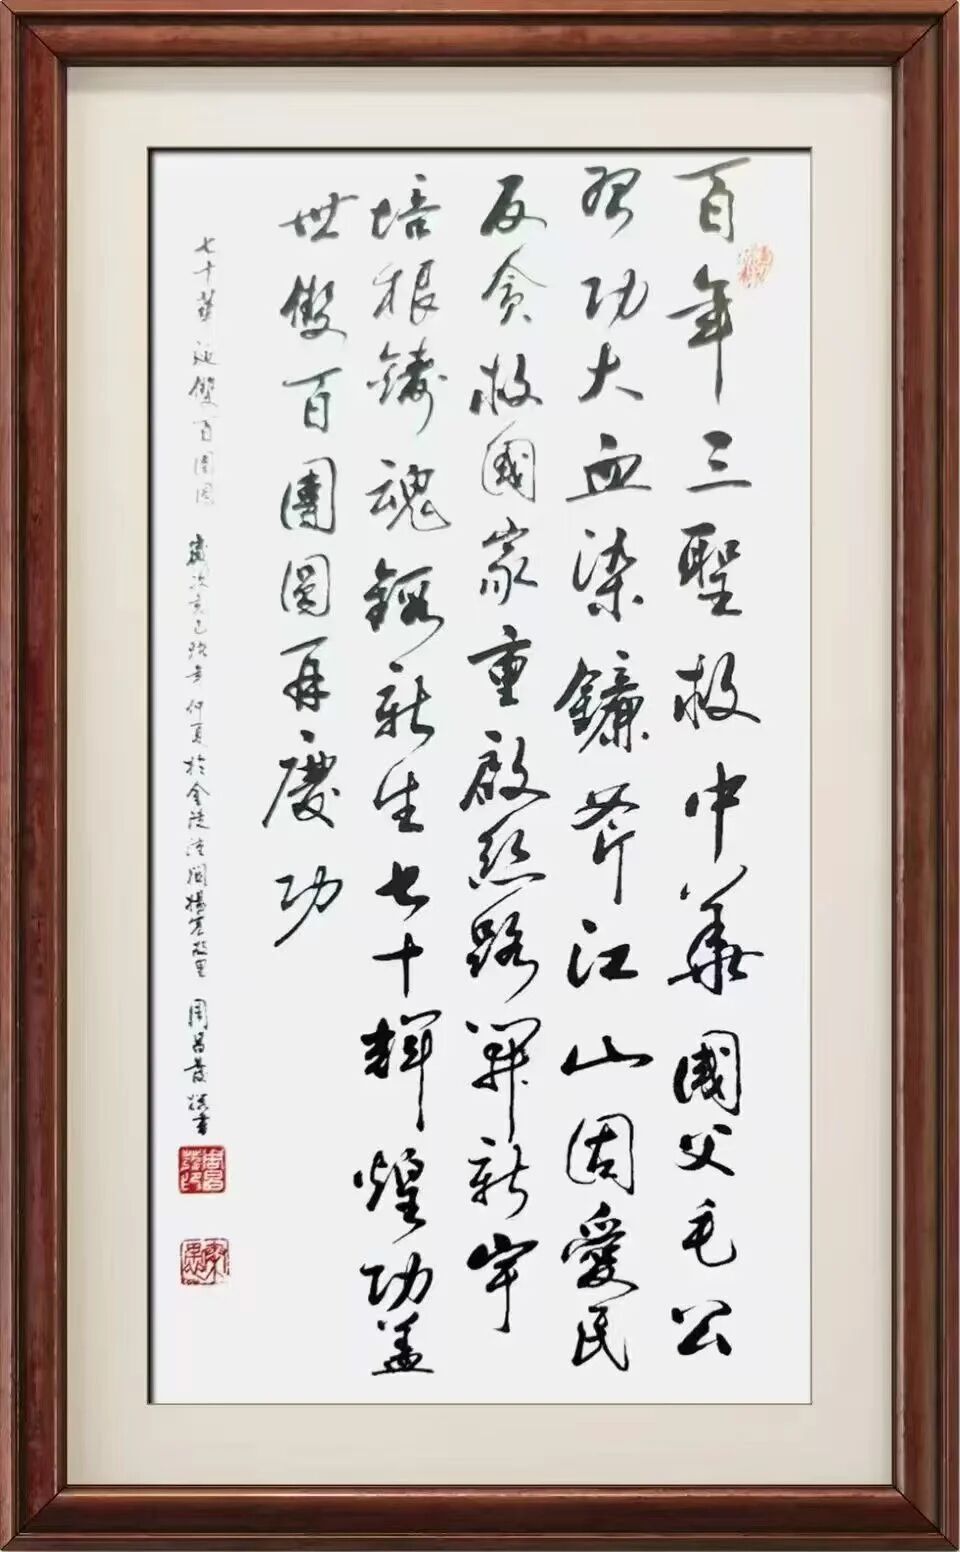 百年三聖救中華國父毛公
習功大血染鐮斧江山固愛民
反貪救國家重啟絲路闢新宇
培根鑄魂鍛新生七十輝煌功蓋
世雙百團圓再慶功
七十華誕雙百團圓 歲次己亥 仲夏於金陵 周昌發 書
周昌發印